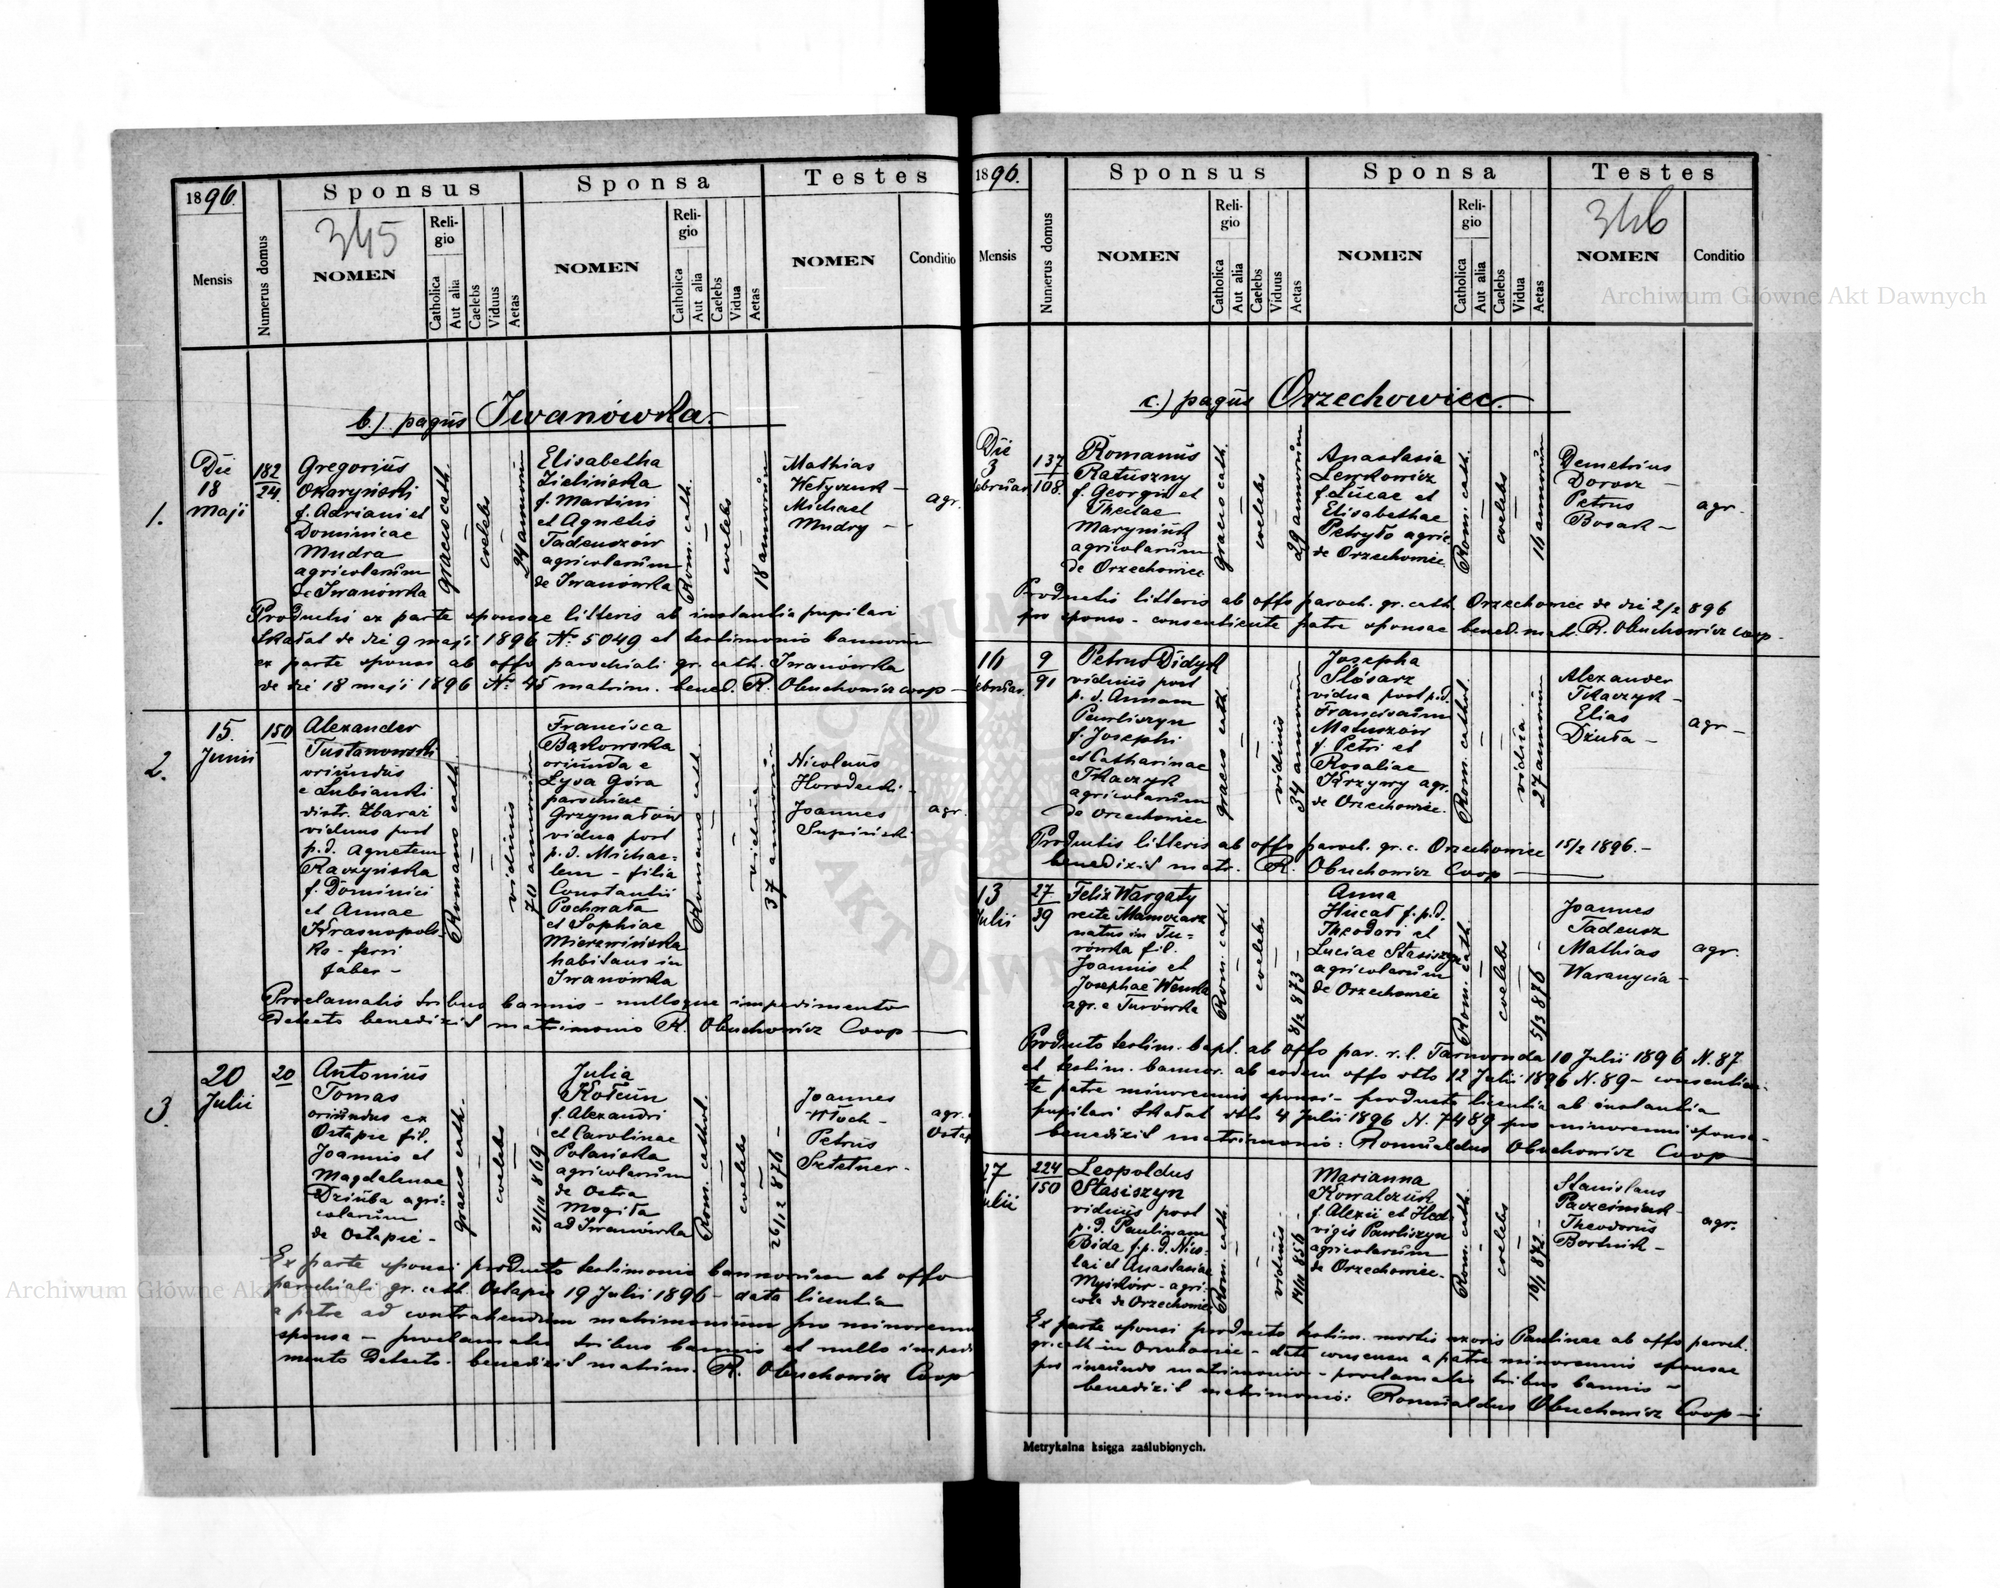 1896.
Sponsus
Sponsa
Testes
Mensis
Numerus domus
345
NOMEN
Religio
Catholica
Aut alia
Caelebs
Viduus
Aetas
NOMEN
Religio
Catholica
Aut alia
Caelebs
Vidua
Aetas
NOMEN
Conditio
b.) pagus Iwanówka.
1.
Die
18
maji
182
24.
Gregorius
Okaryński
f. Adriani et
Dominicae
Mudra
agricolarum
de Iwanówka
graeco cath.
coelebs
24 annorum
Elisabetha
Zielińska
f. Martini
et Agnetis
Tadeuszów
agricolarum
de Iwanówka
Rom. cath.
coelebs
18 annorum
Mathias
Michael
Mudry -
agr.
Productis ex parte sponsae litteris ab instantia pupilari
Skałat de die 9 maji 1896 N. 5049 et testimonio bannorum
ex parte sponsi ab offo parochiali gr. cath. Iwanówka
de die 18 maji 1896 N. 45 matrim. bened. R. Obuchowicz coop -
2.
15.
Junii
150
Alexander
Tustanowski
oriundus
e Lubianki
distr. Zbaraż
viduus post
p. d. Agnetem
Raczyńska
f. Dominici
et Annae
Krasnopols-
ka - ferri
faber -
Romano cath
viduus
70 annorum
Francisca
Barkowska
oriunda e
Łysa Góra
parochiae
Grzymałów
vidua post
p. d. Michae-
lem - filia
Constantii
Pochnata
et Sophiae
Mierzwińska
habitans in
Iwanówka
Romano cath.
vidua
37 annorum
Nicolaus
Horodecki -
Joannes
Supiński
agr.
Proclamatis tribus bannis - nulloque impedimento
detecto benedixit matrimonio R. Obuchowicz Coop -
3.
20
Julii
20
Antonius
Tomas
oriundus ex
Ostapie fil.
Joannis et
Magdalenae
Dziuba agri-
colarum
de Ostapie -
graeco cath. -
coelebs
21/11 869 -
Julia
Kołcun
f. Alexandri
et Carolinae
Polańska
agricolarum
de Ostra
Mogiła
ad Iwanówka
Rom. cathol.
coelebs
26/12 876 -
Joannes
Włoch -
Petrus
Sztetner -
agr.
Ex parte sponsi producto testimonio bannorum ab offo
parochiali gr. cath. Ostapie 19 Julii 1896 - data licentia
a patre ad contrahendum matrimonium pro minorenni
sponsa - proclamatis tribus bannis et nullo impedi
mento detecto - benedixit matrim. R. Obuchowicz Coop
1896.
Sponsus
Sponsa
Testes
Mensis
Numerus domus
NOMEN
Religio
Catholica
Aut alia
Caelebs
Viduus
Aetas
NOMEN
Religio
Catholica
Aut alia
Caelebs
Vidua
Aetas
346
NOMEN
Conditio
c.) pagus Orzechowiec.
Die
3
ebruar.
137
108.
Romanus
Ratuszny
f. Georgii et
Theclae
Maryniuk
agricolarum
de Orzechowiec
graeco cath.
coelebs
29 annorum
Anastasia
Lewkowicz
f. Lucae et
Elisabethae
Petryło agric
de Orzechowiec
Rom. cath.
coelebs
16 annorum
Demetrius
Dorosz -
Petrus
Bosak -
agr.
Productis litteris ab offo paroch. gr. cath. Orzechowiec de die 2/2 896
pro sponso - consentiente patre sponsae bened. mat. R. Obuchowicz coop -
16
ebruar.
9
91
Petrus Didyk
viduus post
p. d. Annam
Pawliszyn
f. Josephi
et Catharinae
Tkaczyk
agricolarum
de Orzechowiec
graeco cath.
viduus
34 annorum
Josepha
Ślósarz
vidua post p.d.
Franciscum
Matuszów
f. Petri et
Rosaliae
Krzywy agr.
de Orzechowiec.
Rom. cathol.
vidua.
27 annorum
Alexander
Tkaczyk -
Elias
Dżuła -
agr -
Productis litteris ab offo paroch. gr. c. Orzechowiec 15/2 1896. -
benedixit matr. R. Obuchowicz Coop -
13
Julii
27
39
Felix Wargaty
recte Mamczarz
natus in Tu-
rówka fil.
Joannis et
Josephae Wenda
agr. e Turówka
Rom. cath.
coelebs
8/2 873 -
Anna
Hucał f. p.d.
Theodori et
Luciae Stasiszyn
agricolarum
de Orzechowiec
Rom. cath.
coelebs
5/3 876 -
Joannes
Tadeusz
Mathias
Waranycia -
agr.
Producto testim. bapt. ab offo par. r. l. Tarnoruda 10 Julii 1896 N. 87
et testim. bannor. ab eodem offo dtto 12 Julii 1896 N. 89 - consentien
te patre minorennis sponsi - producta licentia ab instantia
pupilari Skałat dtto 4 Julii 1896 N. 7489 pro minorenni sponsa -
benedixit matrimonio: Romualdus Obuchowicz Coop
27
Julii
224
150
Leopoldus
Stasiszyn
viduus post
p. d. Paulinam
Bida f. p. d. Nico-
lai et Anastasiae
Myśków - agri-
cola de Orzechowiec
Rom. cath.
viduus -
14/11 856 -
Marianna
Kowalczuk
f. Alexii et Hed-
vigis Pawliszyn
agricolarum
de Orzechowiec -
Rom. cath.
coelebs
16/1 872 -
Stanislaus
Pacześniak -
Theodorus
Bortnik -
agr.
Ex parte sponsi producto testim. mortis uxoris Paulinae ab offo paroch.
gr. cath. in Orzechowiec - dato consensu a patre minorennis sponsae
pro ineundo matrimonio - proclamatis tribus bannis -
benedixit matrimonio: Romualdus Obuchowicz Coop -
Metrykalna księga zaślubionych.
Archiwum Główne Akt Dawnych
Archiwum Główne Akt Dawnych